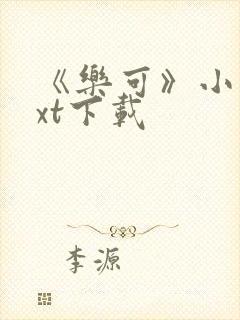 《樂可》小
xt下載
李源